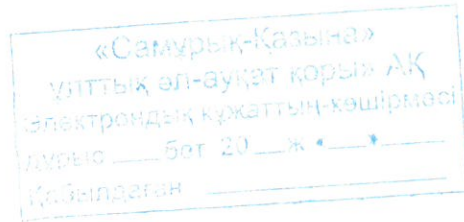 «Самұрық-Қазына»
ұлттық әл-ауқат қоры» АҚ
Электрондық құжаттың көшірмесі
дұрыс ___ бет 20__ ж «__»____
Қабылдаған ____________